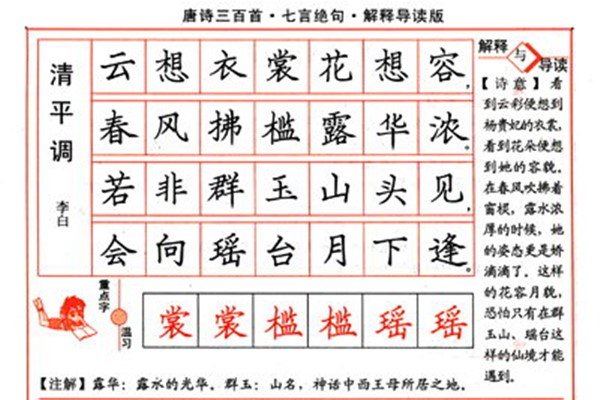 唐诗三百首·七言绝句·解释导读版
清平调
李白
云想衣裳花想容，
春风拂槛露华浓。
若非群玉山头见，
会向瑶台月下逢。
解释与导读
【诗意】看
到云彩便想到
杨贵妃的衣裳，
看到花朵便想
到她的容貌。
在春风吹拂着
窗棂，露水浓
厚的时候，她
的姿态更是娇
滴滴了。这样
的花容月貌，
恐怕只有在群
玉山、瑶台这
样的仙境才能
遇到。
重点字
温习
裳裳槛槛瑶瑶
【注解】露华：露水的光华。群玉：山名，神话中西王母所居之地。